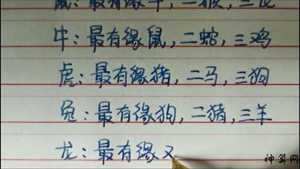 鼠：最有缘牛，二猴，三龙
牛：最有缘鼠，二蛇，三鸡
虎：最有缘猪，二马，三狗
兔：最有缘狗，二猪，三羊
龙：最有缘
神算网